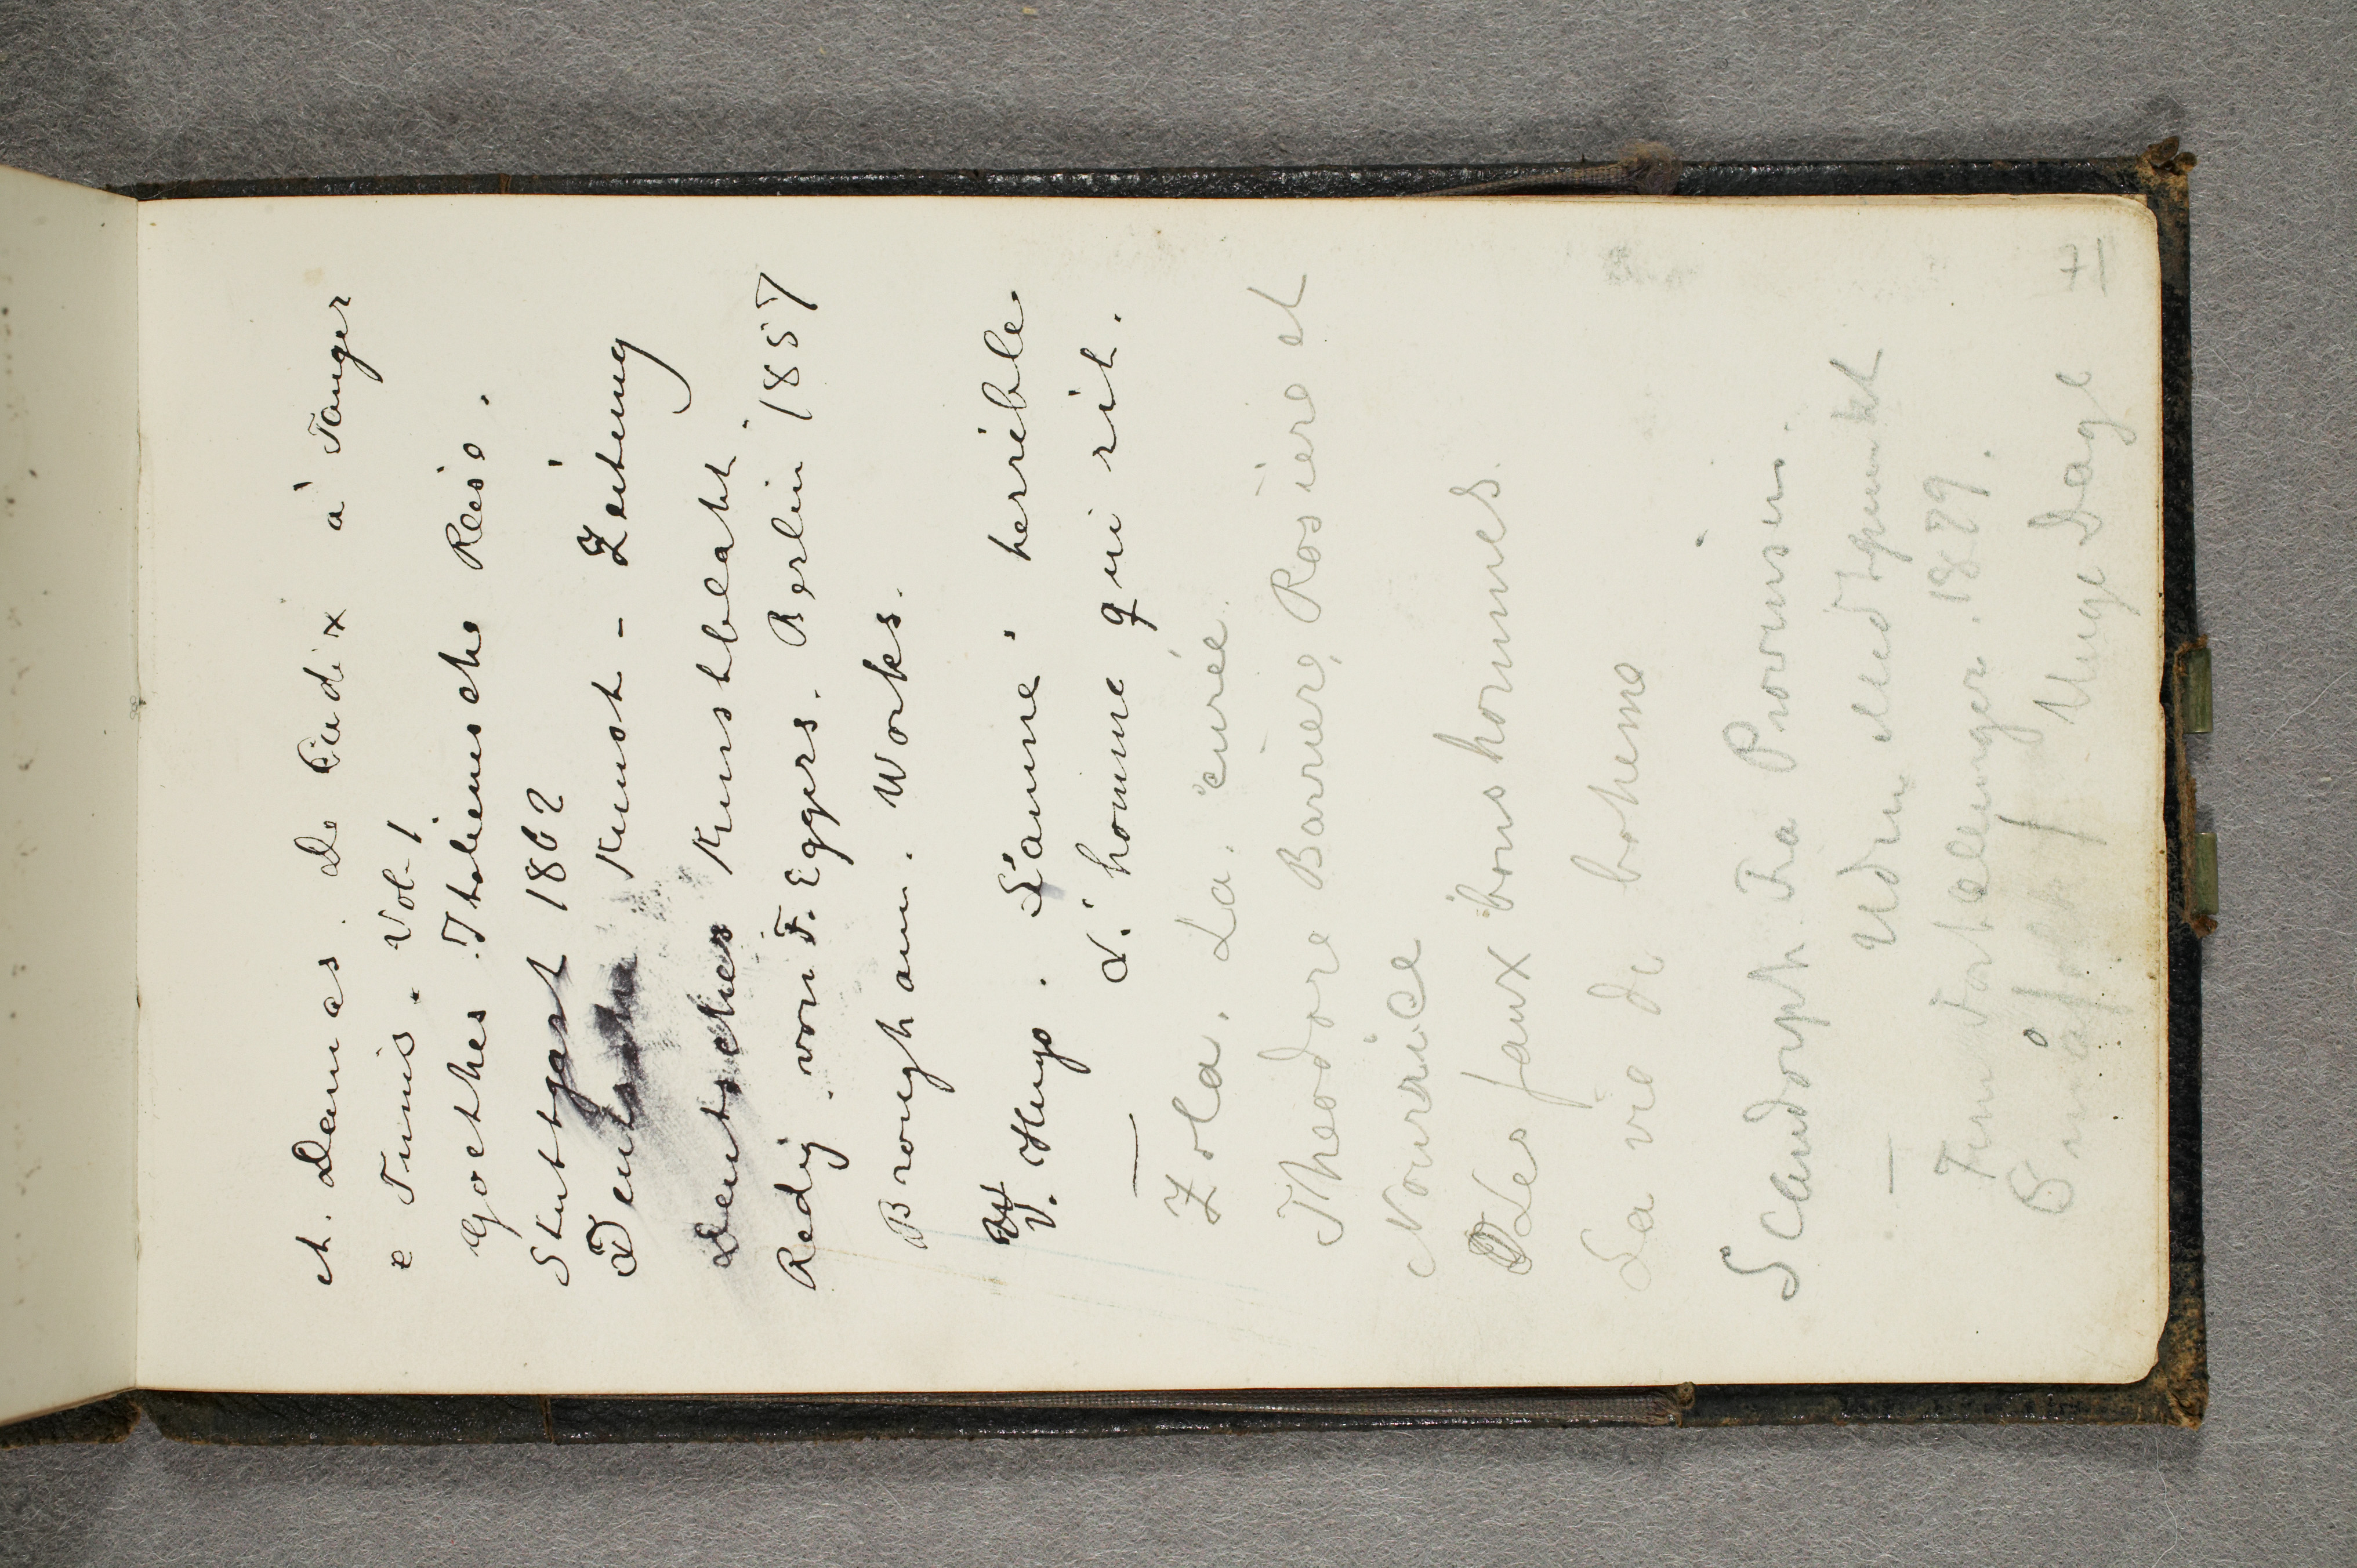 A. Dumas. De Cadix à Tanger
e Tunis. Vol. 1
Goethes Italienische Reise.
Stuttgart 1862
Deutsche Kunst-Zeitung
Deutsches Kunstblatt.
Redig. von F. Eggers. Berlin 1857
Brougham. Works.
V. Hugo. L'anné terrible
— L'homme qui rit.
Zola. La curée.
Theodore Barriere, Rosiere et
Nourrice
Les faux bonshommes.
La vie de boheme
Schandorph. Fra Provinsen.
— Uden Midtpunkt
Fem Fortællinger. 1879.
Småfolk / Unge Dage
71